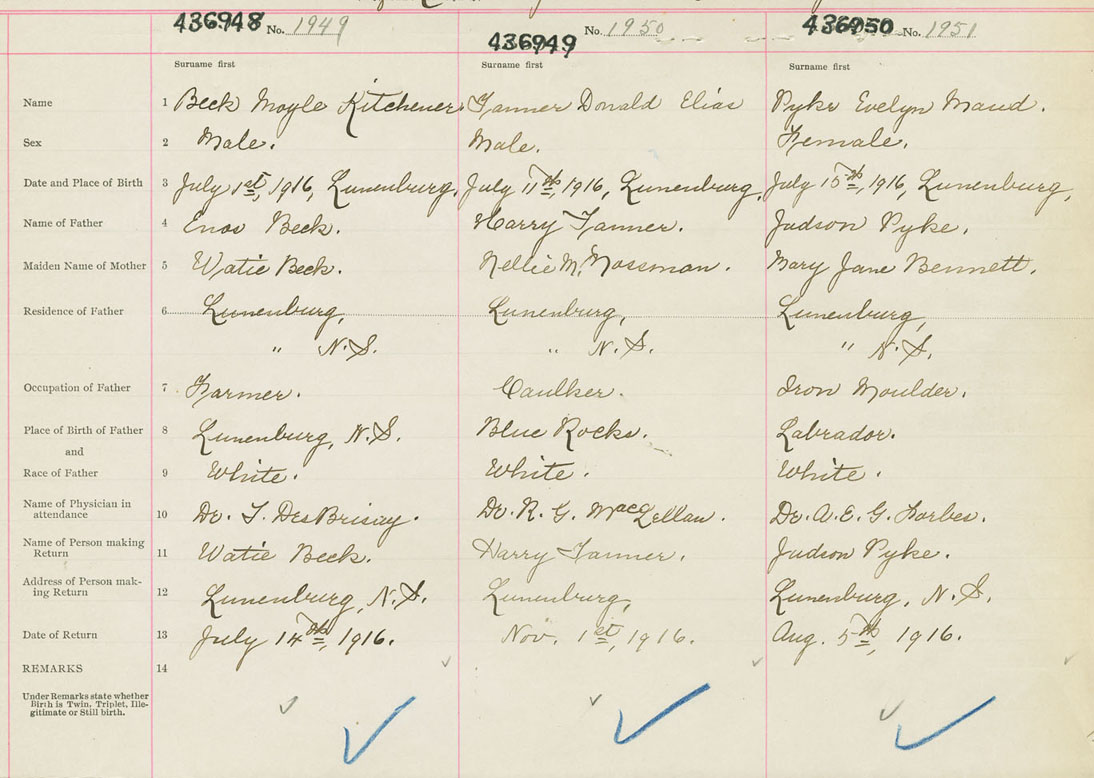 436948 No. 1949 436949 No. 1950 436950 No. 1951
Surname first Surname first Surname first
Name 1 Beck Moyle Kitchener. Tanner Donald Elias Pyke Evelyn Maud.
Sex 2 Male. Male. Female.
Date and Place of Birth 3 July 1st, 1916, Lunenburg. July 11th, 1916, Lunenburg, July 15th, 1916, Lunenburg,
Name of Father 4 Enos Beck. Harry Tanner. Judson Pyke.
Maiden Name of Mother 5 Watie Beck. Nellie M. Mossman. Mary Jane Bennett.
Residence of Father 6 Lunenburg, Lunenburg, Lunenburg,
" N.S. " N.S. " N.S.
Occupation of Father 7 Farmer. Caulker. Iron Moulder.
Place of Birth of Father 8 Lunenburg, N.S. Blue Rocks. Labrador.
and
Race of Father 9 White. White. White.
Name of Physician in
attendance 10 Dr. T. DesBrisay. Dr. R. G. MacLellan. Dr. A. E. G. Forbes.
Name of Person making
Return 11 Watie Beck. Harry Tanner. Judson Pyke.
Address of Person mak-
ing Return 12 Lunenburg, N.S. Lunenburg, Lunenburg, N.S.
Date of Return 13 July 14th, 1916. Nov. 1st, 1916. Aug. 5th, 1916.
REMARKS 14
Under Remarks state whether
Birth is Twin, Triplet, Ille-
gitimate or Still birth.